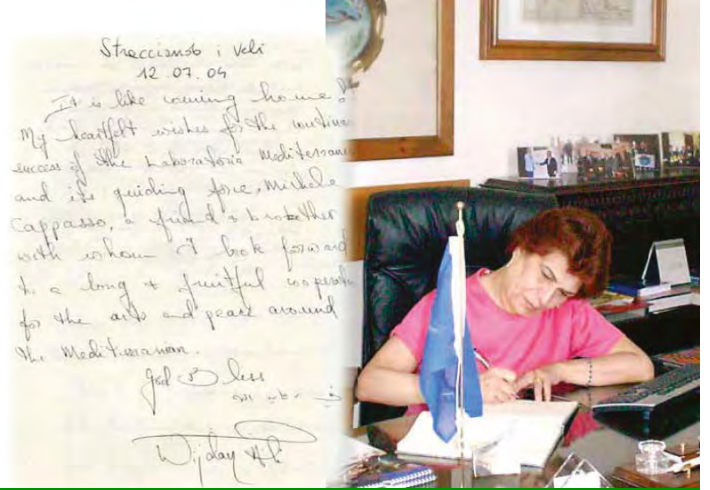 12.07.04
It is like coming home
My heartfelt wishes for the
success of the Laboratorio Mediterrane
and its guiding force, Michele
Cappasso, a friend & brother
with whom I look forward
to a long & fruitful
for the arts and peace around
the Mediterranian.
God Bless